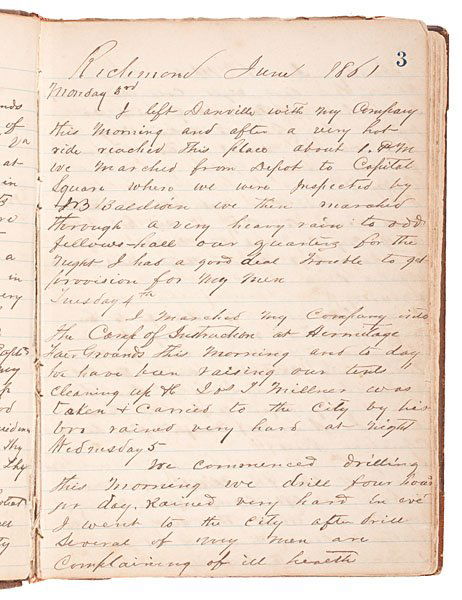 3
Richmond June 1861
Monday 3rd
I left Danville with my Company
this Morning and after a very hot
ride reached this place about 1. P M
we Marched from Depot to Capital
Square where we were Inspected by
J B Baldwin we then marched
through a very heavy rain to odd
fellows hall our quarters for the
night I had a good deal trouble to get
provision for my men
Tuesday 4th
I Marched my Company into
the Camp of Instruction at Hermitage
Fair Grounds this morning and to day
we have been raising our tents
Cleaning up &
Millner was
taken & Carried to the City by his
bro rained very hard at night
Wednesday 5
We commenced drilling
this morning we drill four hours
pr day. Rained very hard in eve
I went to the City after drill
Several of my men are
Complaining of ill health